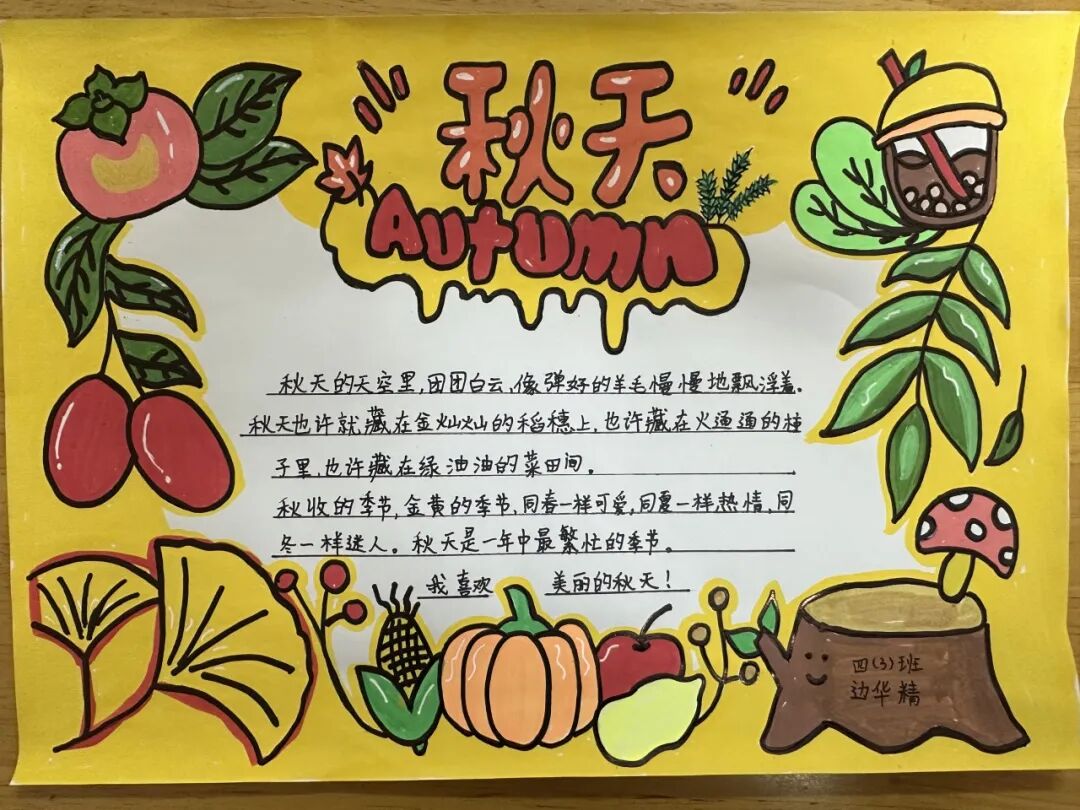 秋天
Autumn
秋天的天空里，团团白云，像弹好的羊毛慢慢地飘浮着。
秋天也许就藏在金灿灿的稻穗上，也许藏在火通通的柿
子里，也许藏在绿油油的菜田间。
秋收的季节，金黄的季节，同春一样可爱，同夏一样热情，同
冬一样迷人。秋天是一年中最繁忙的季节。
我喜欢 美丽的秋天！
四（3）班
边华精